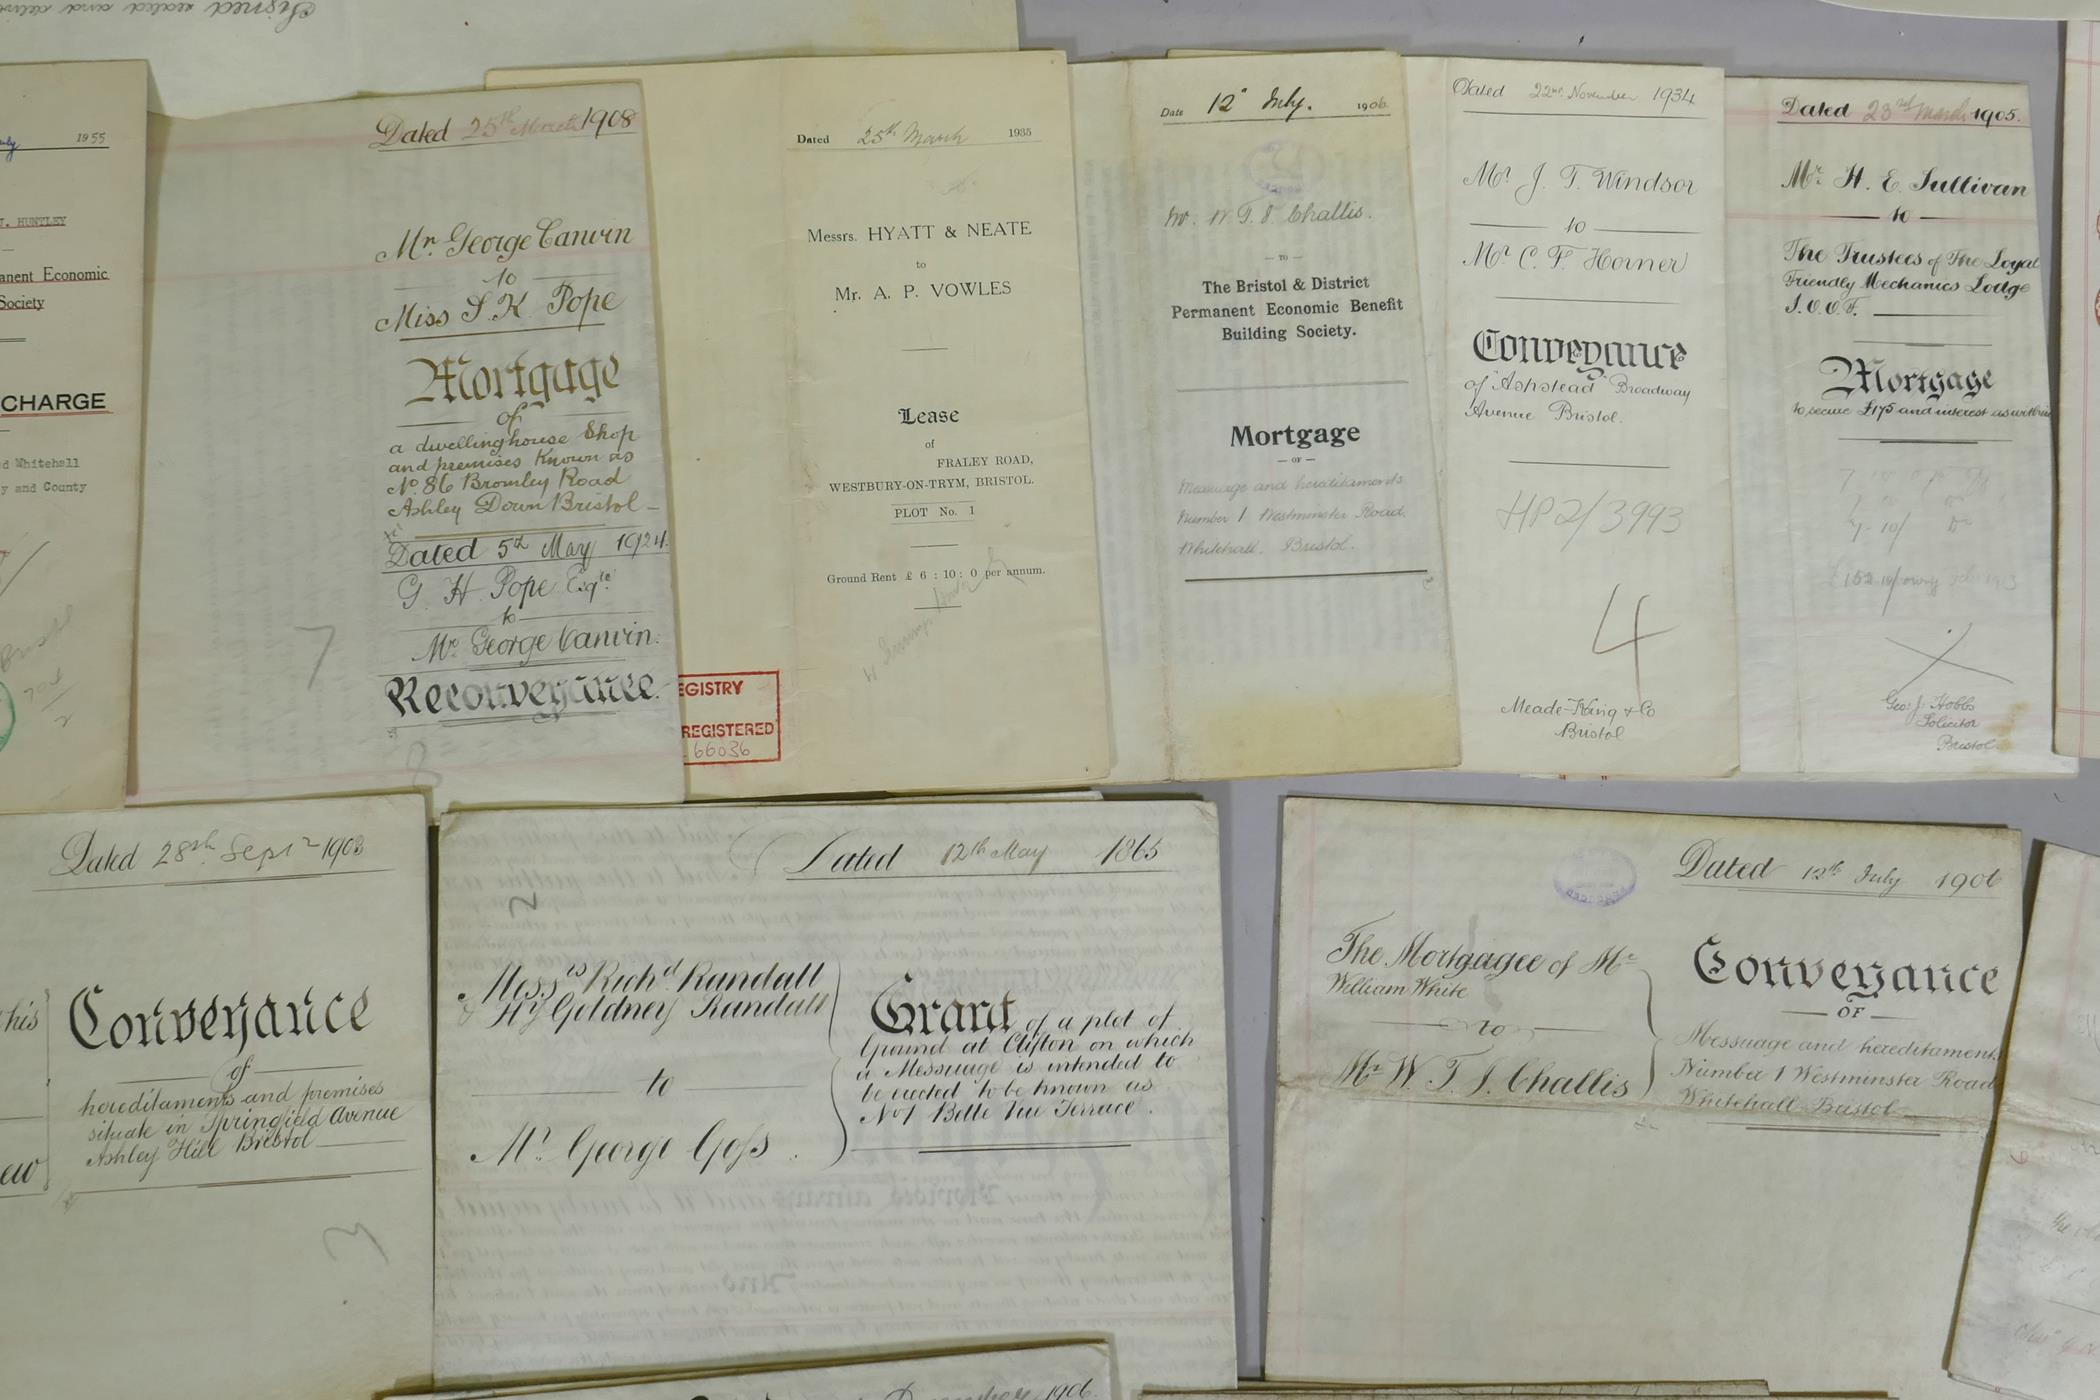 Signed sealed and
1955
J. HUNTLEY
anent Economic
Society
CHARGE
d Whitehall
y and County
Dated 25th March 1908
Mr. George Canvin
to
Miss S. K. Pope
Mortgage
of
a dwellinghouse Shop
and premises Known as
No. 86 Bromley Road
Ashley Down Bristol
Dated 5th May 1924.
G. H. Pope Esqre
to
Mr. George Canvin.
Reconveyance.
7
8
Dated 25th March 1935
Messrs. HYATT & NEATE
to
Mr. A. P. VOWLES
Lease
of
FRALEY ROAD,
WESTBURY-ON-TRYM, BRISTOL.
PLOT No. 1
Ground Rent £ 6 : 10 : 0 per annum.
EGISTRY
REGISTERED
66036
Date 12th July. 1906.
Mr. W. T. J. Challis.
— TO —
The Bristol & District
Permanent Economic Benefit
Building Society.
Mortgage
— OF —
Messuage and hereditaments
Number 1 Westminster Road.
Whitehall. Bristol.
Dated 22nd November 1934
Mr. J. T. Windsor
to
Mr. C. F. Horner
Conveyance
of "Ashstead" Broadway
Avenue Bristol.
HP2/3993
4
Meade-King & Co
Bristol
Dated 23rd March 1905.
Mr. H. E. Sullivan
to
The Trustees of The Loyal
Friendly Mechanics Lodge
I.O.O.F.
Mortgage
to secure £175 and interest as within
Geo: J. Hobbs
Solicitor
Bristol.
Dated 28th Sept 1903
his
ew
Conveyance
of
hereditaments and premises
situate in Springfield Avenue
Ashley Hill Bristol
3
Dated 12th May 1865
2
Messrs Richd Randall
Hy Goldney Randall
to
Mr. George Goss.
Grant of a plot of
Ground at Clifton on which
a Messuage is intended to
be erected to be known as
No 1 Belle Vue Terrace.
Dated 12th July 1906
The Mortgagee of Mr
William White
to
Mr W. T. J. Challis
Conveyance
OF
Messuage and hereditaments
Number 1 Westminster Road
Whitehall Bristol
1906.